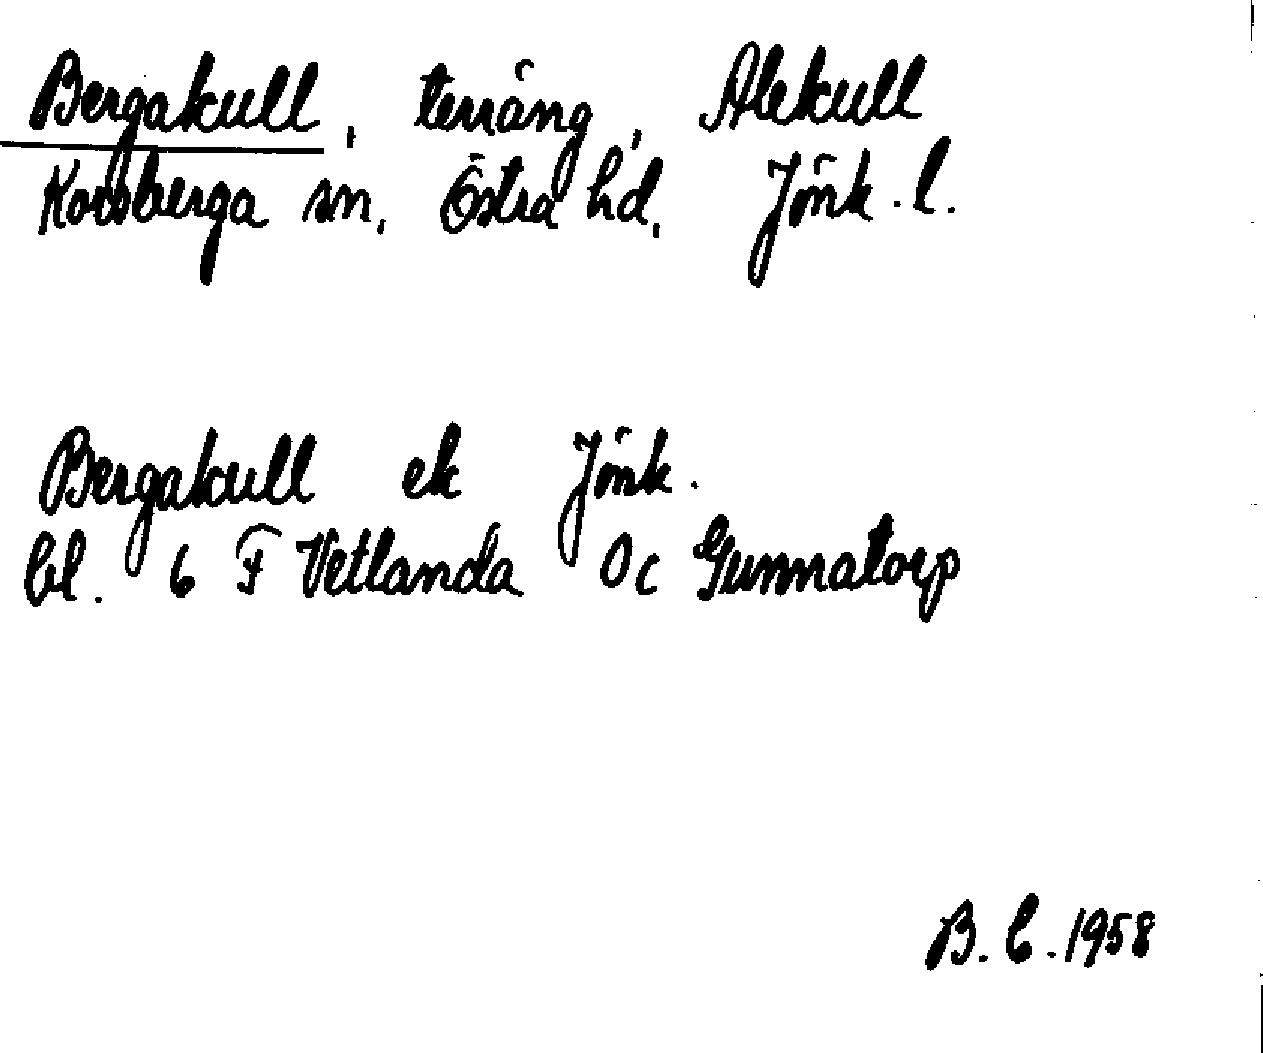 Bergakull, terräng, Alekull
Korsberga sn, Östra hd, Jönk.l.
Bergakull ek Jönk.
bl. 6 F Vetlanda Oc Gunnatorp
B. C. 1958